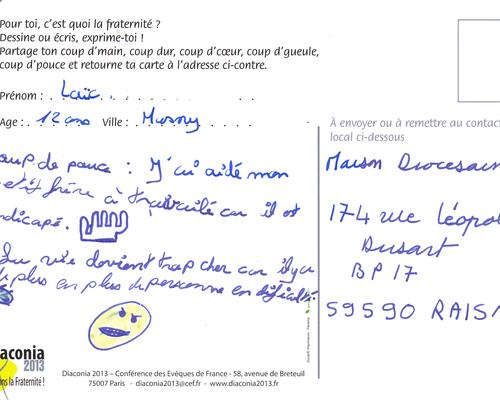 Pour toi, c'est quoi la fraternité ?
Dessine ou écris, exprime-toi !
Partage ton coup d'main, coup dur, coup d'cœur, coup d'gueule,
coup d'pouce et retourne ta carte à l'adresse ci-contre.
Prénom : Loïc
Age : 12 ans Ville : Murny
À envoyer ou à remettre au contact
local ci-dessous
oup de pouce : J'ai aidé mon
etit frère à travaillé car il est
ndicapé.
vie devient trop cher car il y a
plus en plus de personne en difficulté
Maison Diocesain
174 rue Léopol
Dusart
BP 17
59590 RAISM
aconia
2013
ns la Fraternité !
Diaconia 2013 – Conférence des Evêques de France - 58, avenue de Breteuil
75007 Paris - diaconia2013@cef.fr - www.diaconia2013.fr